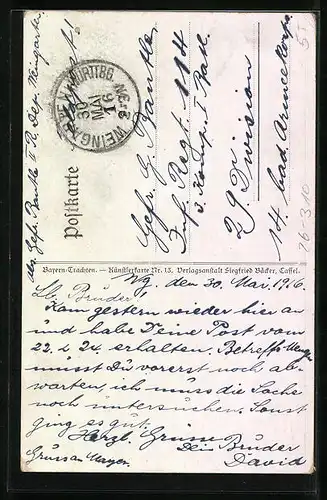 Feldpost!
Postkarte
WEINGARTEN WÜRTTBG.
30 MAI 16
Gefr. G. Bantle
Inf. Regt. 114
3. Komp. I Batl.
29 Division
14. bad Armeekorps
Bayern-Trachten. — Künstlerkarte Nr. 13. Verlagsanstalt Siegfried Bäcker, Cassel.
Wg. den 30. Mai 1916.
Lb. Bruder
Kam gestern wieder hier an
und habe Deine Post vom
22. & 24. erhalten. Betreffs
musst Du vorerst noch ab-
warten, ich muss die Sache
noch untersuchen. Sonst
ging es gut.
Herzl. Grüsse
Dein Bruder
David
Gruss an Mayer.